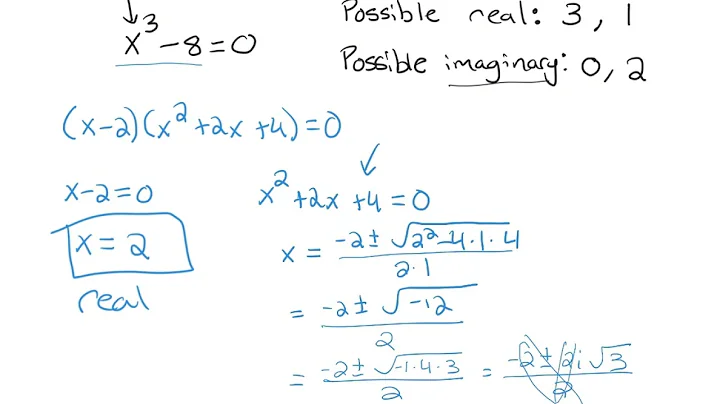 x³ - 8 = 0
Possible real: 3, 1
Possible imaginary: 0, 2
(x-2)(x² + 2x + 4) = 0
x - 2 = 0
x = 2
real
x² + 2x + 4 = 0
x = (-2 ± √(2² - 4·1·4))/(2·1)
= (-2 ± √(-12))/2
= (-2 ± √(-1·4·3))/2 = (-2 ± 2i√3)/2